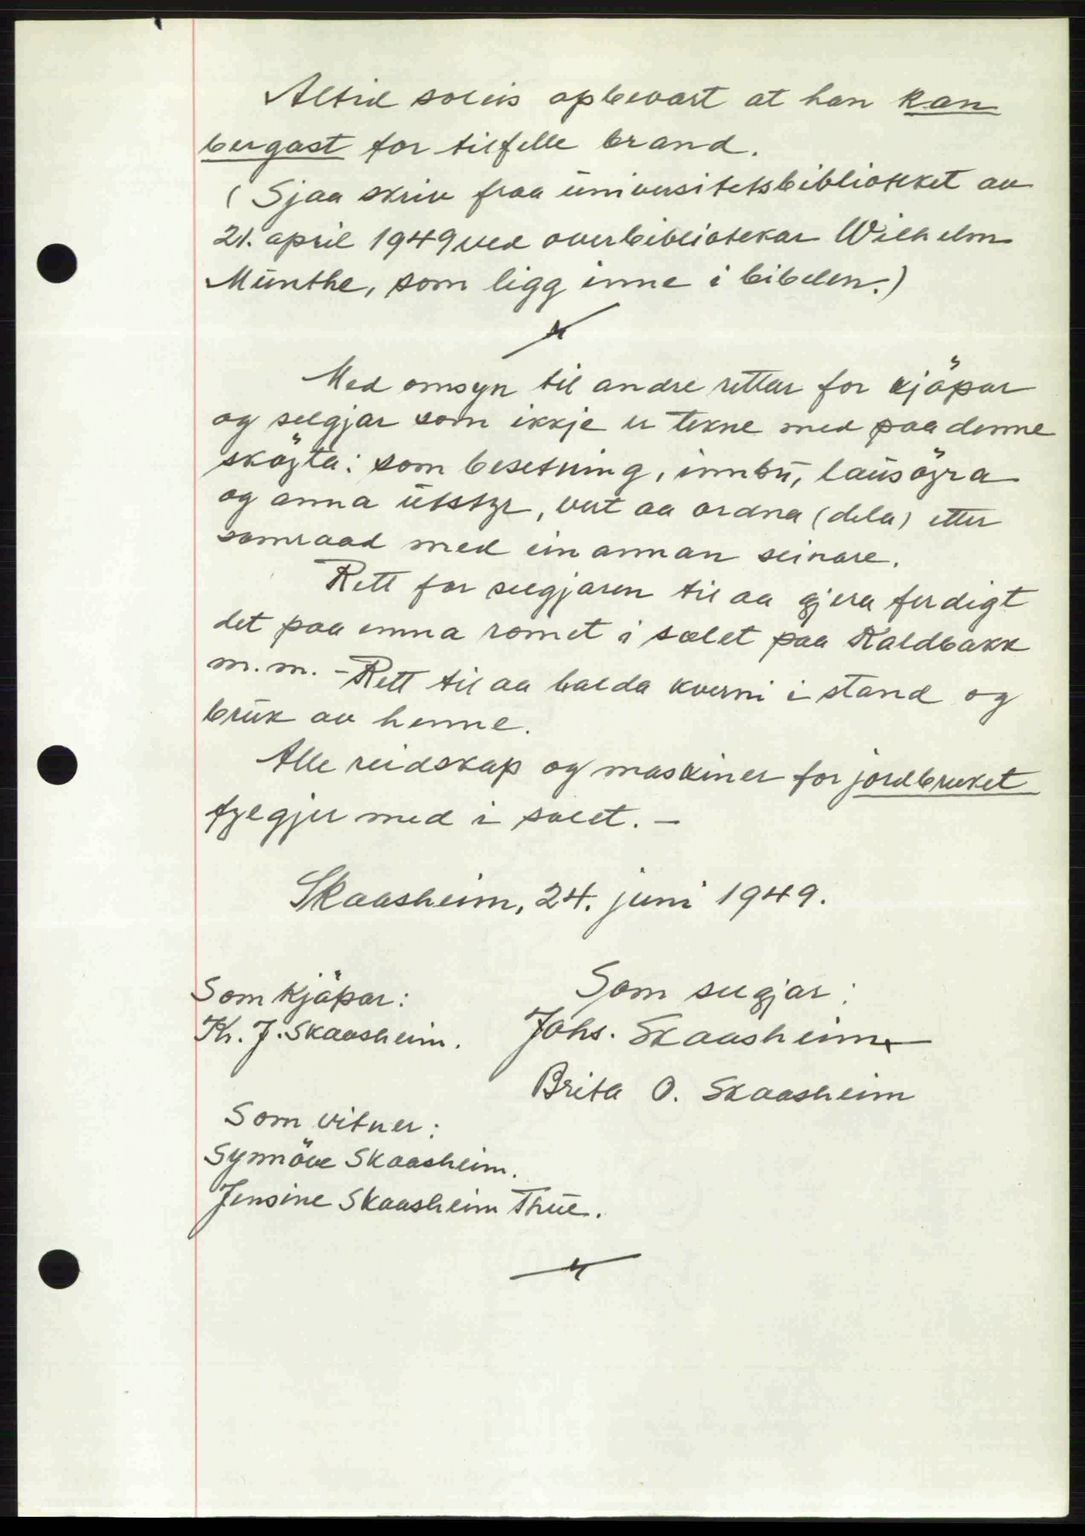 Altid soleis opbevart at han kan
bergast for tilfelle brand.
(Sjaa skriv fraa universitetsbiblioteket av
21. april 1949 ved overbibliotekar Wilhelm
Munthe, som ligg inne i bibelen.)
Med omsyn til andre rettar for kjöpar
og selgjar som ikkje er tekne med paa denne
sköyta: som besetning, innbu, lausöyra
og anna utstyr, vert aa ordna (dela) etter
samraad med ein annan seinare.
Rett for selgjaren til aa gjera ferdigt
det paa emna romet i selet paa Kaldbakk
m.m. - Rett til aa halda kverni i stand og
bruk av henne.
Alle reidskap og maskiner for jordbruket
fylgjer med i salet. -
Skaasheim, 24. juni 1949.
Som kjöpar:
K. J. Skaasheim.
Som selgjar:
Johs. Skaasheim
Brita O. Skaasheim
Som vitner:
Synnöve Skaasheim.
Jensine Skaasheim Thue.